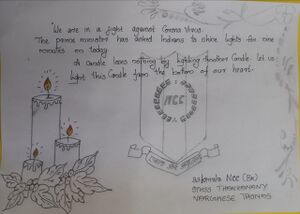 "We are in a fight against Corona Virus.
The prime minister has asked Indians to shine lights for nine
minutes on today
A candle loses nothing by lighting another candle. Let us
light this candle from the bottom of our heart.
NCC
NCC (BN)
THANKAMANY
VARGHESE THOMAS